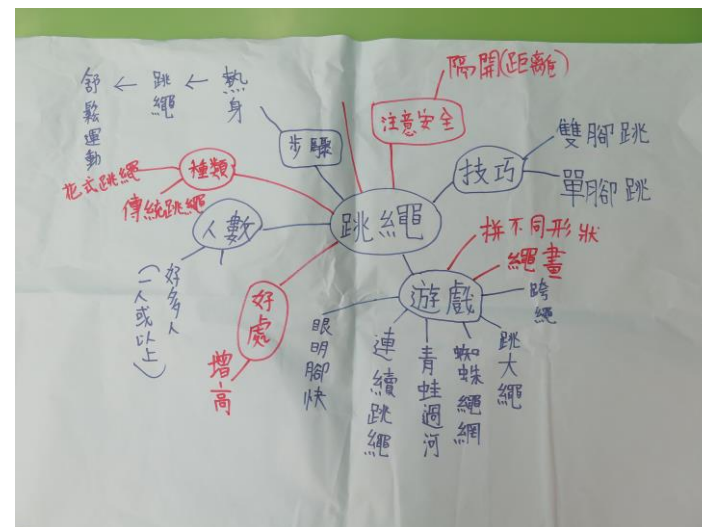 跳繩
步驟
熱身 → 跳繩 → 舒鬆運動
注意安全
隔開(距離)
技巧
雙腳跳
單腳跳
種類
花式跳繩
傳統跳繩
人數
好多人
(一人或以上)
好處
增高
遊戲
拼不同形狀
繩畫
跨繩
跳大繩
蜘蛛繩網
青蛙過河
連續跳繩
眼明腳快